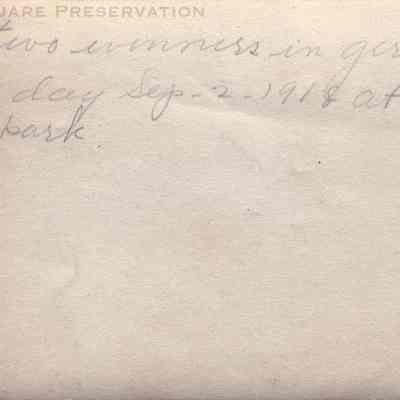 UARE PRESERVATION
two winners in gir
day Sep-2-1918 at
park